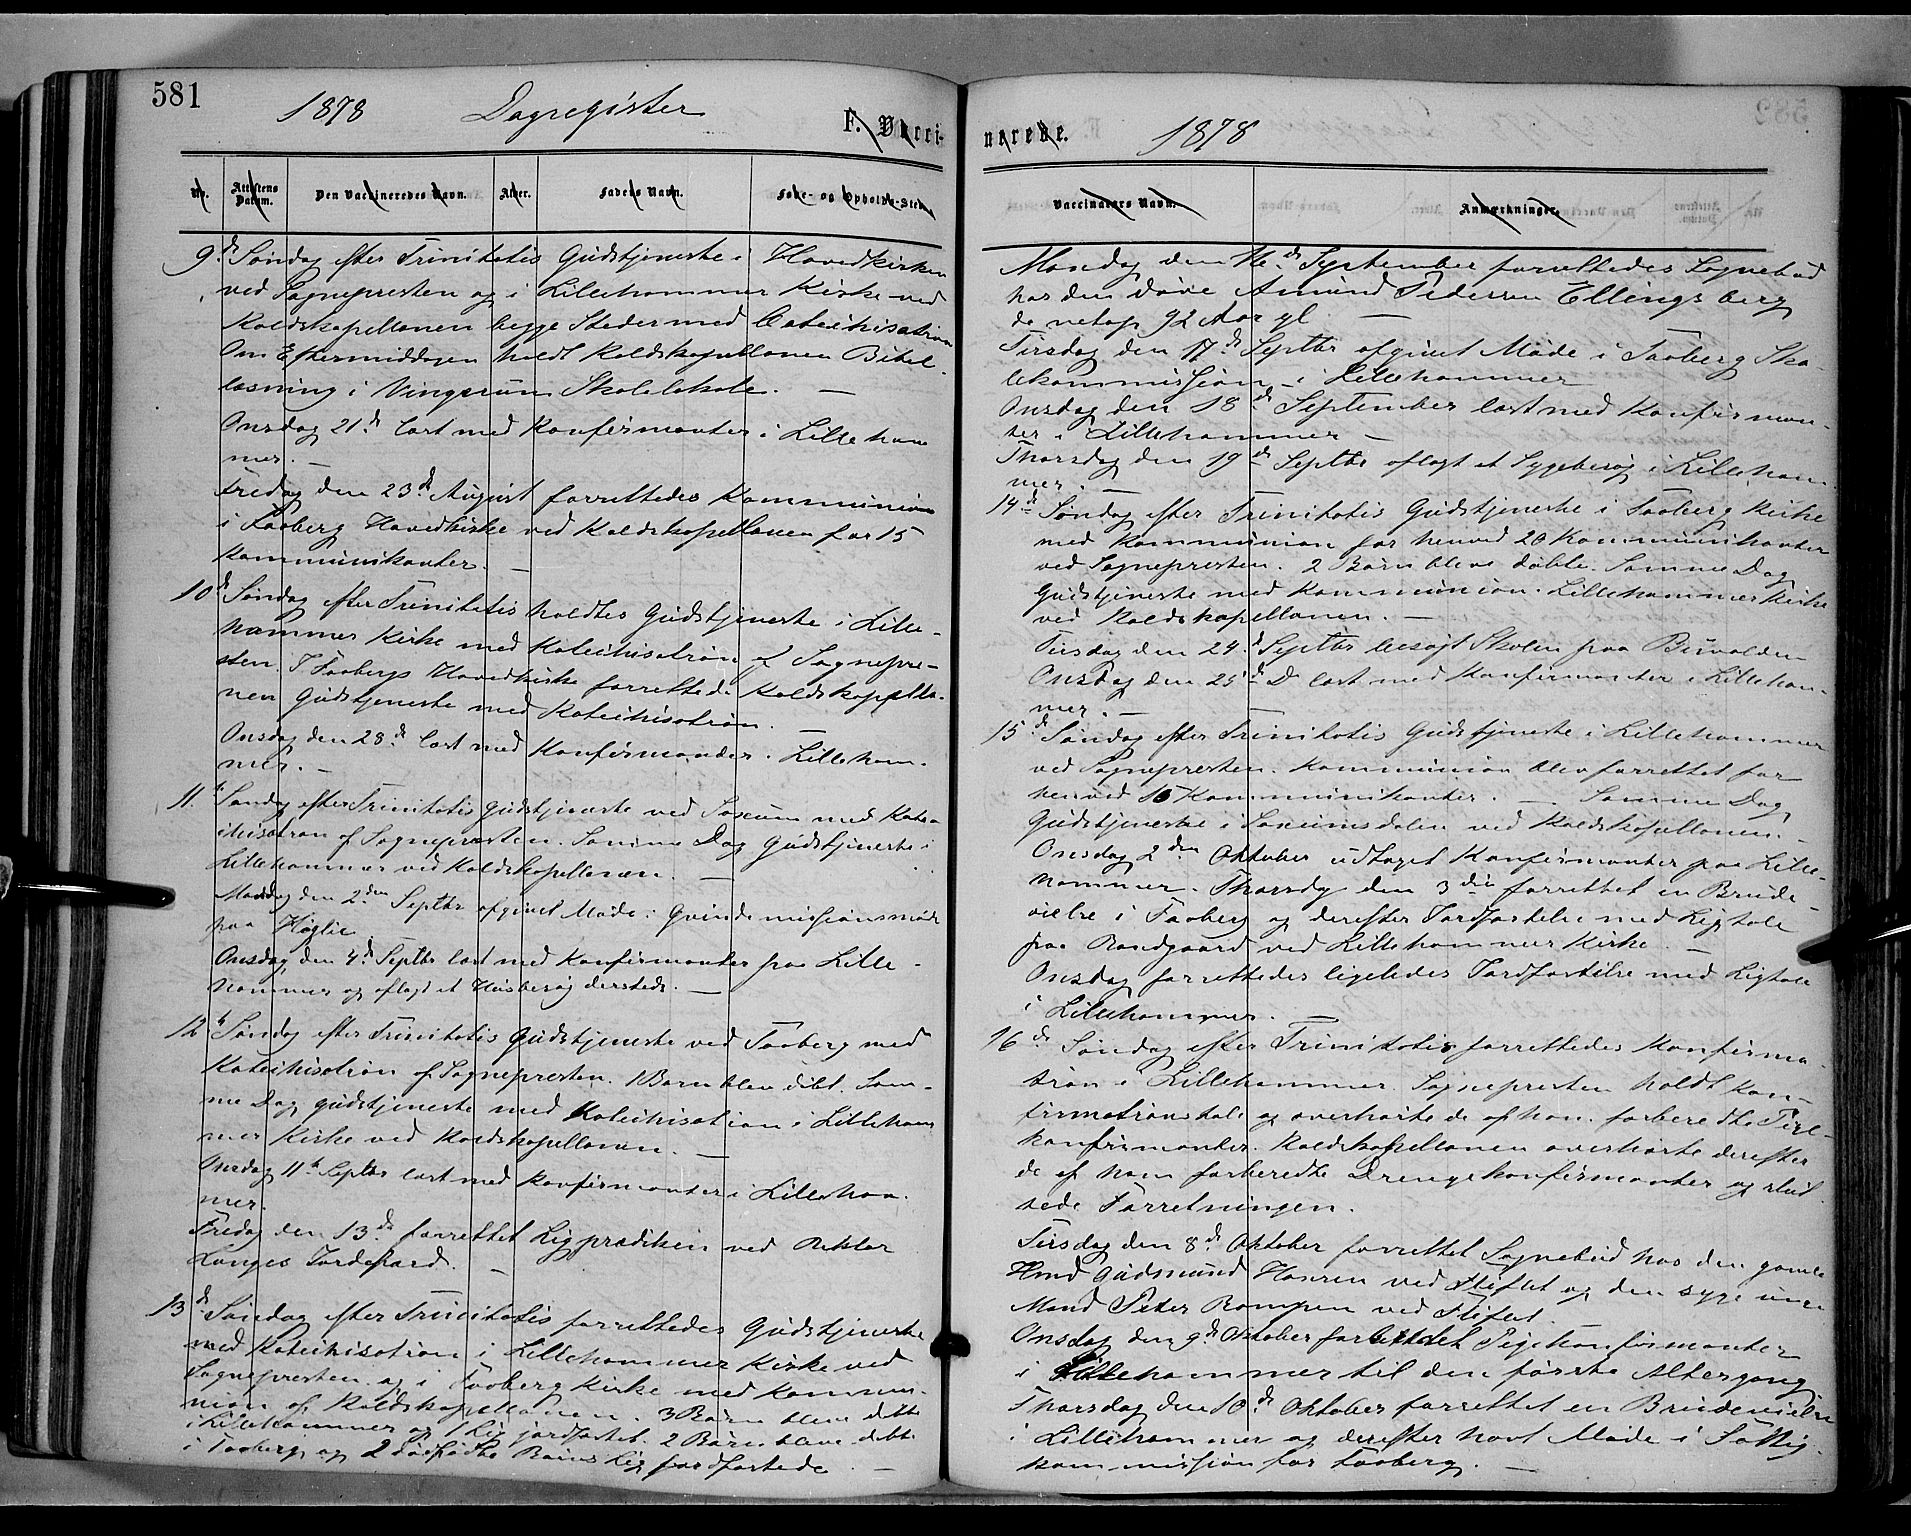 581
1878 Dagregister F. Vacci-
No. Attestens Datum. Den Vaccineredes Navn. Alder. Faders Navn. Føde- og Opholds-Sted.
9de Søndag efter Trinitatis Gudstjeneste i Hovedkirken
ved Sognepresten og i Lillehammer Kirke ved
Kaldskapellanen begge Steder med Catechisation
Om Eftermiddagen holdt Kaldskapellanen Bibel-
læsning i Vingerum Skolelokale. —
Onsdag 21de læst med Konfirmanter i Lilleham
mer. —
Fredag den 23de August forrettedes Kommunion
i Faaberg Hovedkirke ved Kaldskapellanen for 15
Kommunikanter. —
10de Søndag efter Trinitatis holdtes Gudstjeneste i Lille-
hammer Kirke med Katechisation af Sognepre-
sten. I Faabergs Hovedkirke forrettede Kaldskapella-
nen Gudstjeneste med Katechisation. —
Onsdag den 28de læst med Konfirmander i Lilleham-
mer. —
11te Søndag efter Trinitatis Gudstjeneste ved Saxum med Kate-
chisation af Sognepresten. Samme Dag Gudstjeneste i
Lillehammer ved Kaldskapellanen. —
Mandag den 2den Septbr afgivet Møde i Qvindemissionsmøde
paa Høglie.
Onsdag den 4de Septbr læst med Konfirmanter paa Lille-
hammer og aflagt et Husbesøg dersteds. —
12te Søndag efter Trinitatis Gudstjeneste ved Faaberg med
Katechisation af Sognepresten. 1 Barn blev døbt. Sam-
me Dag Gudstjeneste med Katechisation i Lilleham
mer Kirke ved Kaldskapellanen. —
Onsdag 11te Septbr læst med Konfirmanter i Lilleham-
mer.
Fredag den 13de forrettet Ligprædiken ved Rektor
Langes Jordefærd. —
13de Søndag efter Trinitatis forrettedes Gudstjeneste
med Katechisation i Lillehammer Kirke ved
Sognepresten og i Faaberg Kirke med Kommu-
nion af Kaldskapellanen. 3 Børn bleve døbte
i Lillehammer og 1 Lig jordfæstet. 2 Børn bleve døbte
i Faaberg og 2 dødfødte Børns Lig jordfæstede —
nerede. 1878
Vaccinators Navn. Anmærkninger.
Mandag den 16de September forrettedes Sognebud
hos den døve Amund Pedersen Ellingsberg
da netop 92 Aar gl —
Tirsdag den 17de Septbr afgivet Møde i Faaberg Sko-
lekommission i Lillehammer
Onsdag den 18de September læst med Konfirman-
ter i Lillehammer —
Thorsdag den 19de Septbr aflagt et Sygebesøg i Lilleham
mer. —
14de Søndag efter Trinitatis Gudstjeneste i Faaberg Kirke
med Kommunion for henved 20 Kommunikanter
ved Sognepresten. 2 Børn bleve døbte. Samme Dag
Gudstjeneste med Kommunion i Lillehammer Kirke
ved Kaldskapellanen. —
Tirsdag den 24de Septbr besøgt Skolen paa
Onsdag den 25de Do læst med Konfirmanter i Lilleham-
mer. —
15de Søndag efter Trinitatis Gudstjeneste i Lillehammer
ved Sognepresten. Kommunion blev forrettet for
henved 15 Kommunikanter. — Samme Dag
Gudstjeneste i Saxumsdalen ved Kaldskapellanen.
Onsdag 2den Oktober udtaget Konfirmanter paa Lille-
hammer. Thorsdg den 3die forrettet en Brude-
vielse i Faaberg og derefter Jordfæstelse med Ligtale
paa ved Lillehammer Kirke. —
Onsdag forrettedes ligeledes Jordfæstelse med Ligtale
i Lillehammer. —
16de Søndag efter Trinitatis forrettedes Konfirma-
tion i Lillehammer. Sognepresten holdt Kon-
firmationstale og overhørte de af ham forberedte Pige-
konfirmanter. Kaldskapellanen overhørte derefter
de af ham forberedte Drengekonfirmanter og slut
tede Forretningen.
Tirsdag den 8de Oktober forrettet Sognebud hos den gamle
Gudmund Hansen ved Stiftet og den syge unge
Mand Peter Rompen ved Stiftet.
Onsdag den 9de Oktober forberedet Pigekonfirmanter
i Lillehammer til den første Altergang
Thorsdag den 10de Oktober forrettet en Brudevielse
i Lillehammer og derefter havt Møde i Fattig-
kommission for Faaberg. —